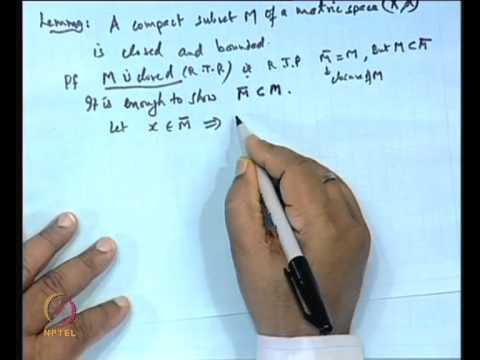 Lemma: A compact subset M of a metric space (X,d)
is closed and bounded.
Pf M is closed (R.T.P) ie R.T.P M̄ = M, But M ⊂ M̄
↓ closure of M
It is enough to show M̄ ⊂ M.
Let x ∈ M̄ ⇒
NPTEL